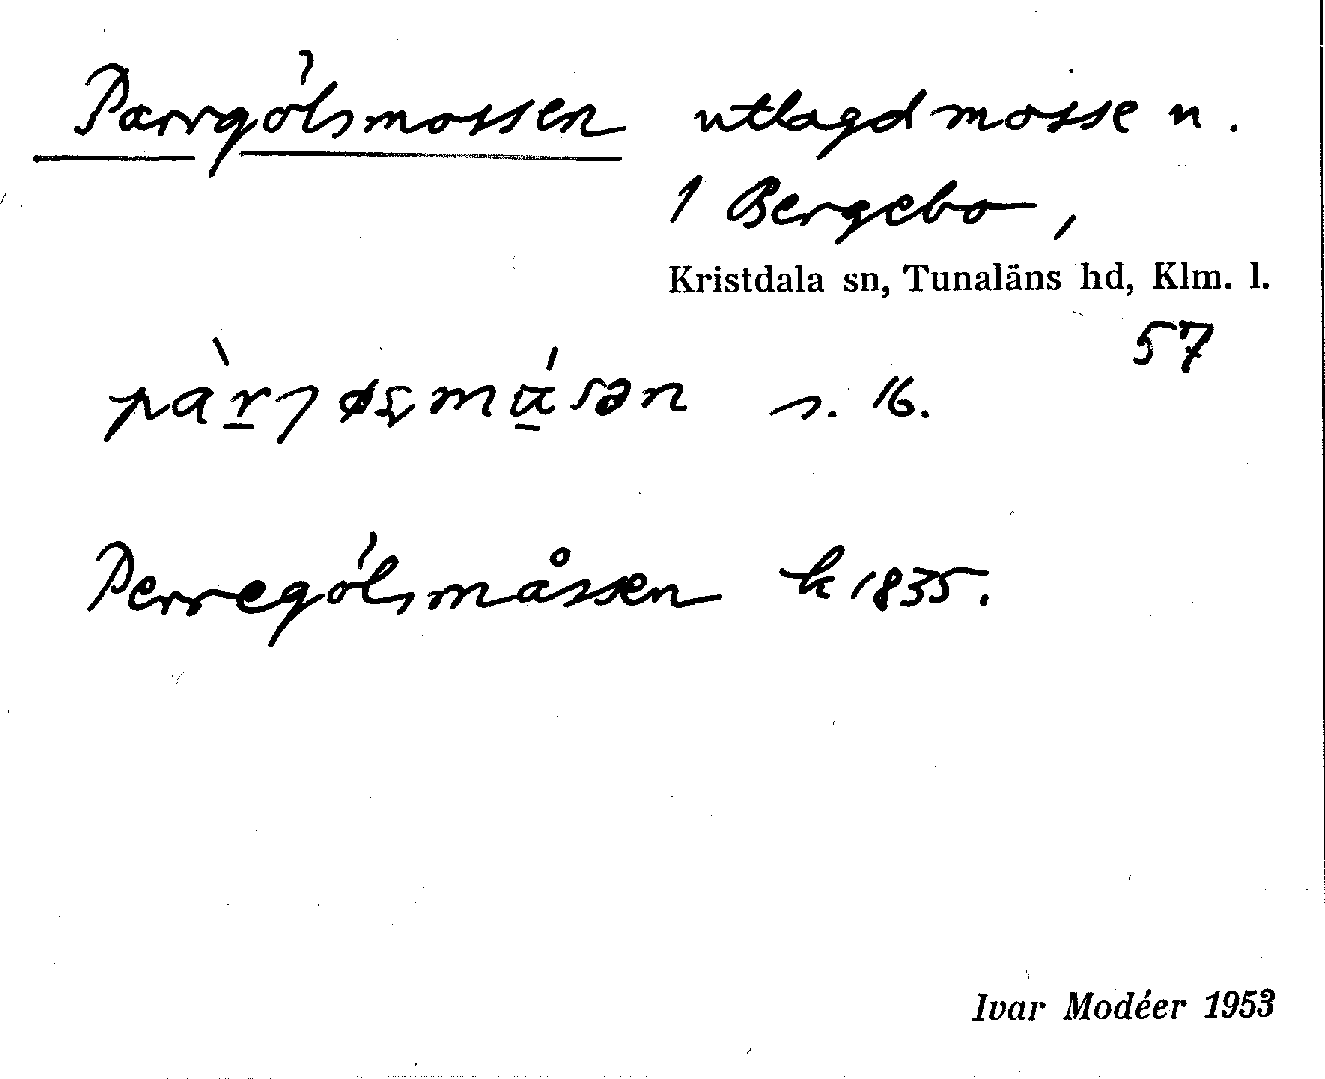 Parrgölsmossen utlagd mosse n.
1 Bergebo,
Kristdala sn, Tunaläns hd, Klm. l.
57
s. 16.
Perregölsmåssen k 1835.
Ivar Modéer 1953